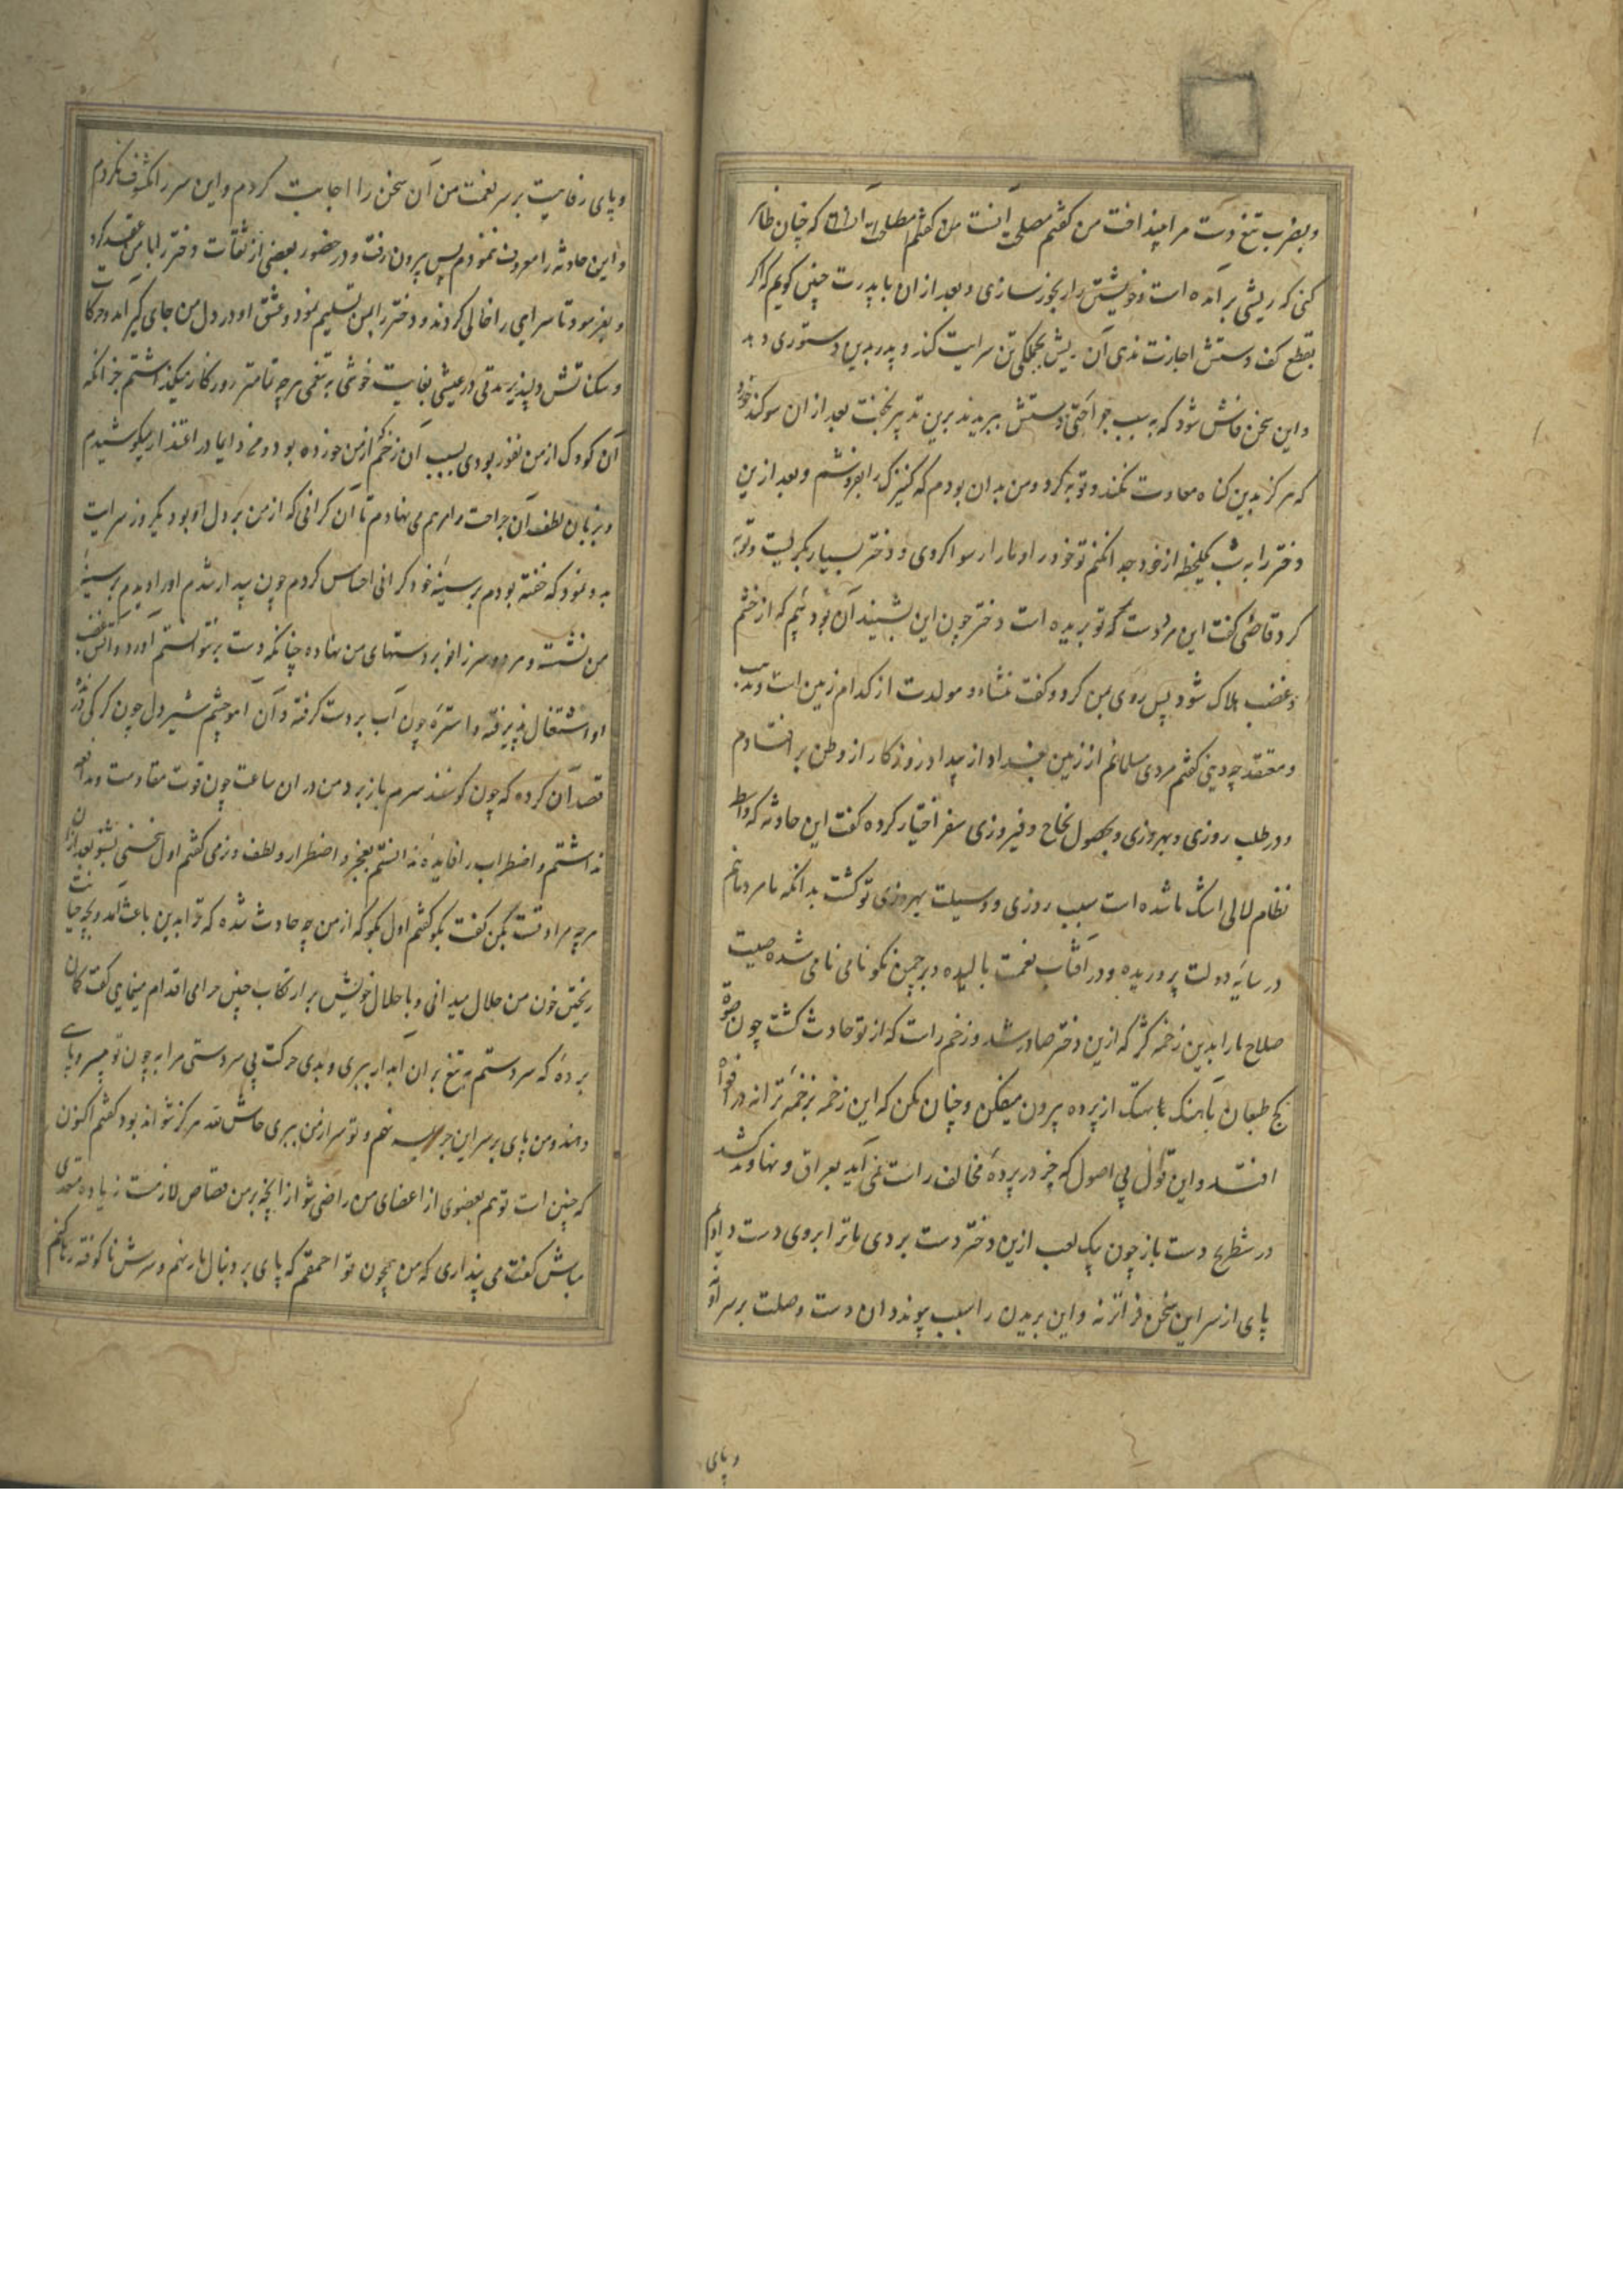 و بضرب تیغ دست مرا بینداخت من گفتم مصلحت آنست که چنان ظاهر
کنی که ریشی برآمده است و خویشتن را رنجور سازی و بعد از ان با پدرت چنین گویم که اگر
بقطع کف دستش اجازت ندهی آن ریش بجملگی تن سرایت کند و پدر بدین دستوری دهد
و این سخن فاش شود که به سبب جراحتی دستش ببریدند برین تدبیر بخفت بعد از ان سوگند خورد
که هرگز بدین کناه معاودت نکند و توبه کرد و من بدان بودم که کنیزک را بفروشم و بعد ازین
دختر را به شب یکلحظه از خود جدا نکنم تو خود را و مارا رسوا کردی و دختر بسیار بگریست و توبه
کرد قاضی گفت این مرد دست که تو بریده است دختر چون این بشنید آن بود بیم که از خشم
و غضب هلاک شود پس روی بمن کرد و گفت منشاء و مولدت از کدام زمین است و مذهب
و معتقد چه دینی گفتم مردی مسلمانم از زمین بغداد از بیداد روزگار از وطن برافتادم
و در طلب روزی و بهروزی و بحصول نجاح و فیروزی سفر اختیار کرده گفت این حادثه که واسطه
نظام لالی اشک ما شده است سبب روزی و وسیلت بهروزی تو گشت بدانکه ما مردمانیم
در سایه دولت پروریده و در آفتاب نعمت بالیده و بر چمن نکو نامی نامی شده صیت
صلاح ما را بدین زخمه کژ که ازین دختر صادر شد و زخم راست که از تو حادث گشت چون صوت
کج طبعان بآهنگ تا بهتک از پرده بیرون میفکن و چنان مکن که این زخمه بزخمه ترانه در افواه
افتد و این قول بی اصول که جز در پرده مخالف راست نمی آید بعراق و نهاوند کشد
در شطرنج دست باز چون یک لعب ازین دختر دست بردی ما ترا بروی دست دادیم
پای از سر این سخن فراتر نه و این بریدن را سبب پیوند دان دست وصلت بر سر آور
و پای
و پای رفاهیت بر سر نعمت من آن سخن را اجابت کردم و این سر را مکشوف نکردم
و این حادثه را معروف ننمودم پس بیرون رفت و در حضور بعضی از ثقات دختر را با من عقد کرد
و بفرمود تا سرایی را خالی کردند و دختر را بمن تسلیم نمود و عشق او در دل من جای گیر آمد و حرکات
و سکناتش دلپذیر مدتی در عیشی بغایت خوشی به تنعمی هرچه تمامتر روزگار میگذاشتم جز آنکه
آن کودک از من نفور بودی بسبب آن زخم که از من خورده بود و من دایما در اعتذار میکوشیدم
و بزبان لطف آن جراحت را مرهم می نهادم تا آن گرانی که از من بر دل او بود یک روز سرایت
بدو نمود که خفته بودم بر سینه خود گرانی احساس کردم چون بیدار شدم او را دیدم بر سینه
من نشسته و هر دو سر زانو بر دستهای من نهاده چنانکه دست بر نتوانستم آورد و آتش غضب
او اشتعال پذیرفته و استره چون آب بر دست گرفته و آن آهو چشم شیر دل چون گرگی
قصد آن کرده که چون گوسفند سرم باز برد من در ان ساعت چون قوت مقاومت و مدافعه
نداشتم و اضطراب را فایده ندانستم بعجز و اضطرار و لطف و نرمی گفتم اول سخنی بشنو بعد از ان
هر چه مرادتست بکن گفت بگو گفتم اول بگو که از من چه حادث شده که ترا بدین باعث آمد و بچه جنایت
ریختن خون من حلال میدانی و با حلال خویش بر ارتکاب چنین حرامی اقدام مینمایی گفت گمان
برده که سر دستم به تیغ بران آبدار ببری و بدی حرکت بی سر دستی مرا به چون تو بی سر و پایی
دهند و من پای بر سر این جریمه نهم و تو سر از من ببری حاش لله هرگز نتواند بود گفتم اکنون
که چنین است تو هم بعضوی از اعضای من راضی شو از آنچه بر من قصاص لازمست زیاده متعدی
مباش گفت می پنداری که من همچون تو احمقم که پای بر دنبال مار نهم و سرش ناکوفته رها کنم